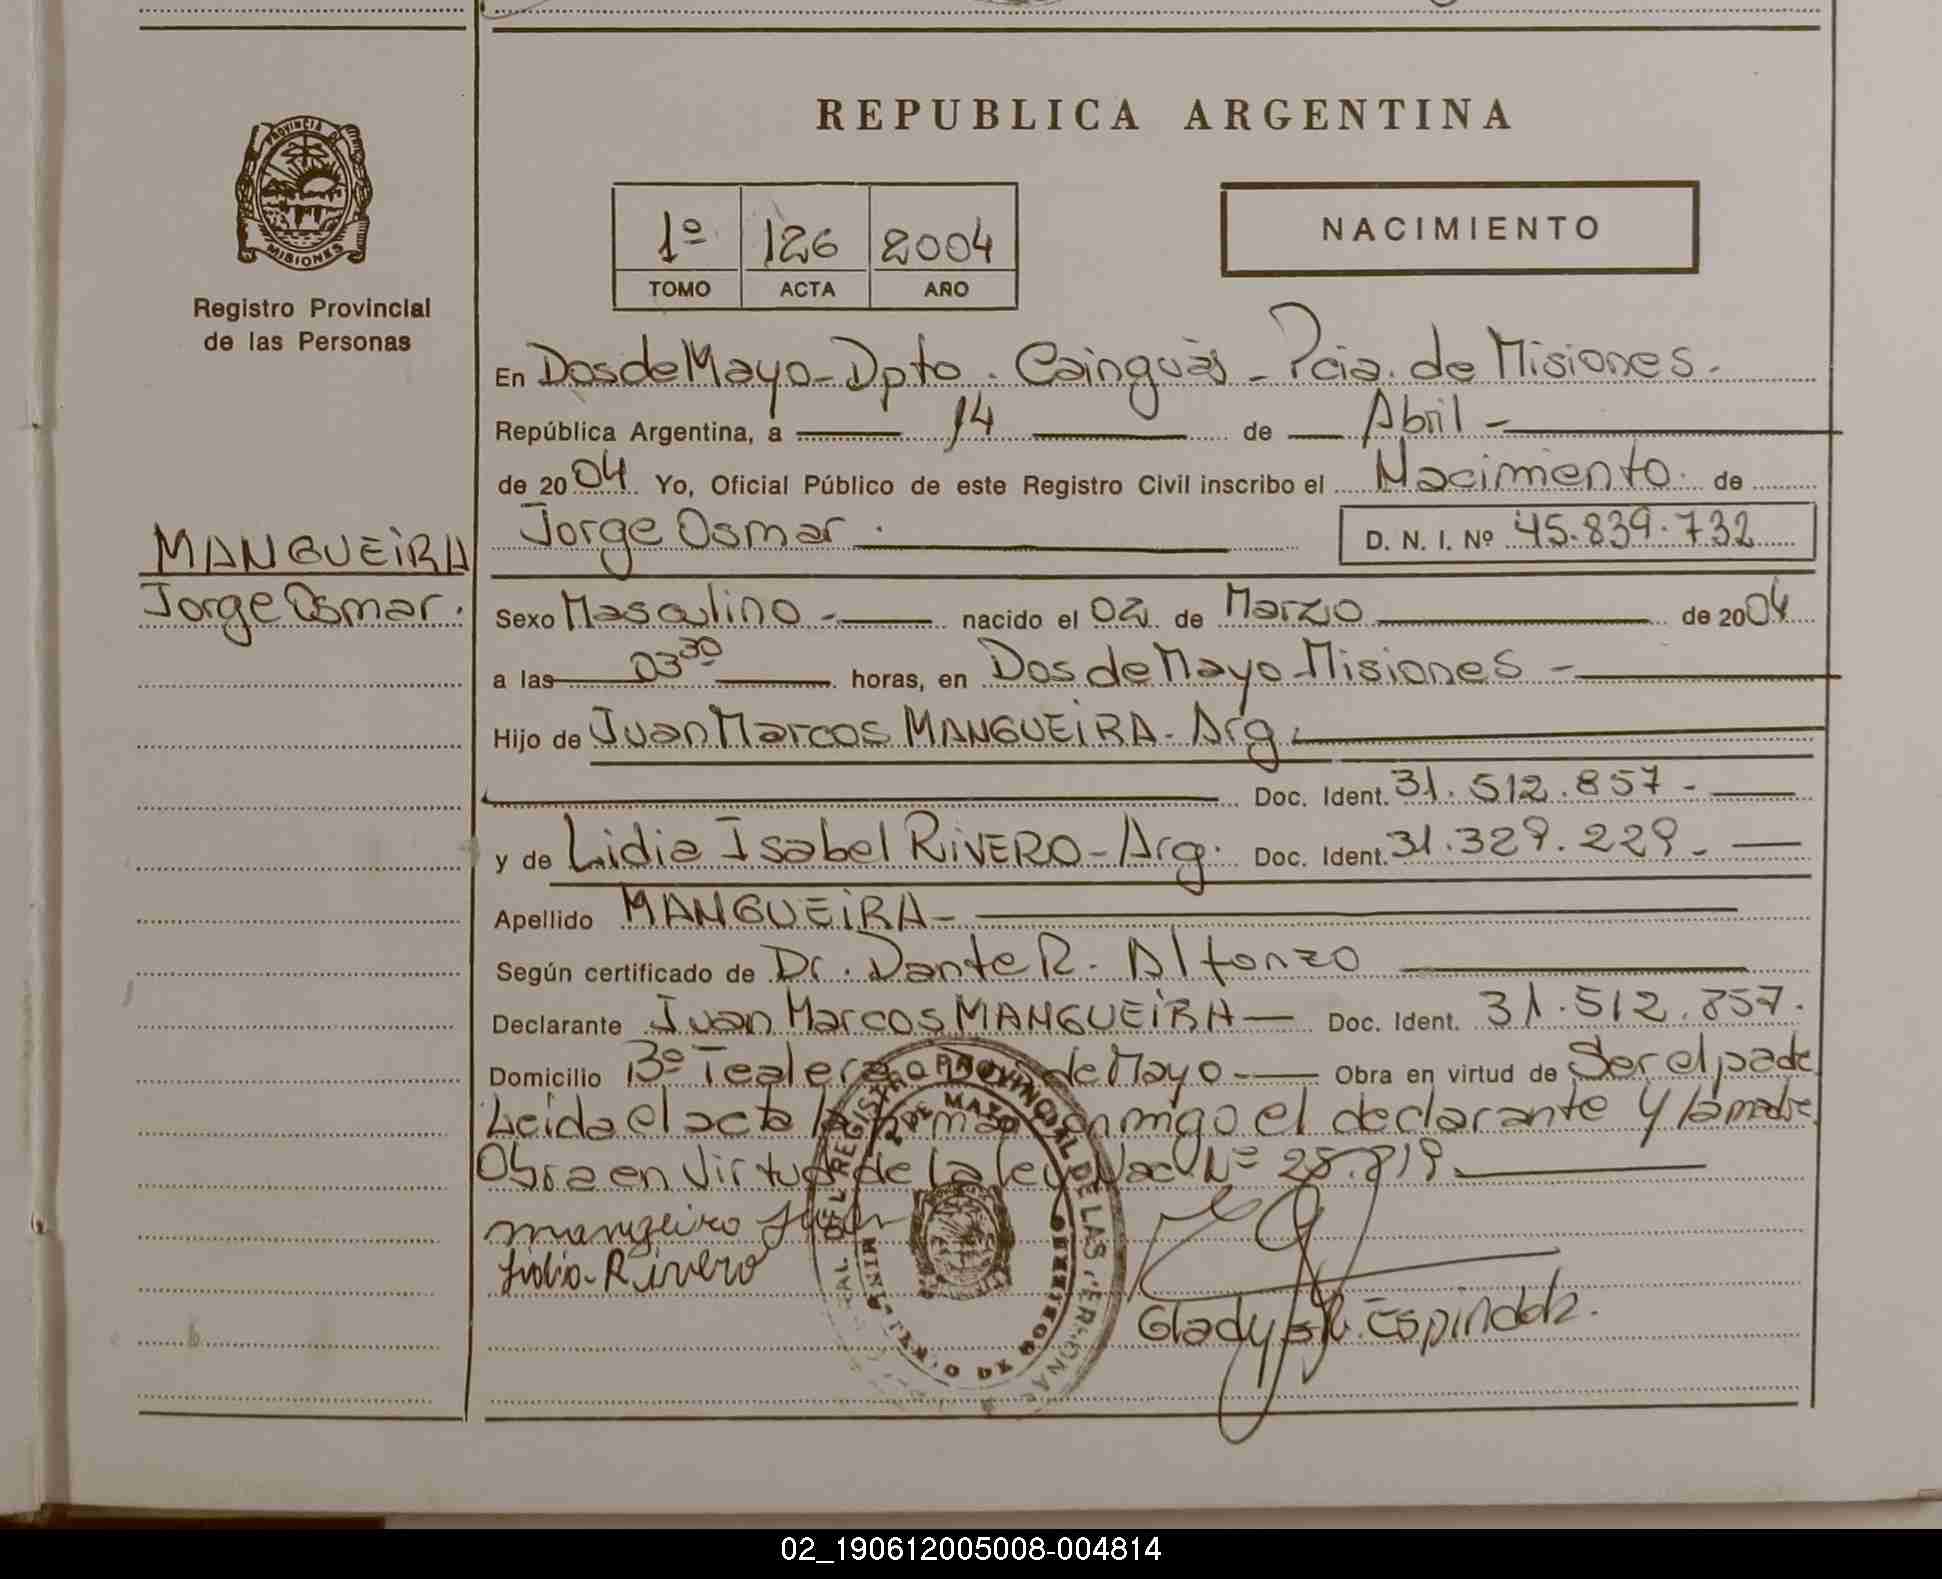 REPUBLICA ARGENTINA
PROVINCIA DE
MISIONES
Registro Provincial
de las Personas
1º 126 2004
TOMO ACTA AÑO
NACIMIENTO
En Dos de Mayo - Dpto. Cainguás - Pcia. de Misiones.
República Argentina, a 14 de Abril -
de 2004 Yo, Oficial Público de este Registro Civil inscribo el Nacimiento de
Jorge Osmar. D. N. I. Nº 45.839.732
MANGUEIRA
Jorge Osmar.
Sexo Masculino - nacido el 02 de Marzo de 2004
a las 03 30 horas, en Dos de Mayo Misiones -
Hijo de Juan Marcos MANGUEIRA - Arg.
Doc. Ident. 31.512.857 -
y de Lidia Isabel RIVERO - Arg. Doc. Ident. 31.329.229 -
Apellido MANGUEIRA -
Según certificado de Dr. Dante R. Alfonzo
Declarante Juan Marcos MANGUEIRA - Doc. Ident. 31.512.857.
Domicilio Bº Tealera Dos de Mayo - Obra en virtud de Ser el padre
Leida el acta la firman conmigo el declarante y la madre
Obra en virtud de la ley Nac Nº 25.819
mangeiro Juan
Lidia Rivero
REGISTRO PROVINCIAL DE LAS PERSONAS
2 DE MAYO
MINISTERIO DE GOBIERNO
Gladys R. Espindola.
02_190612005008-004814